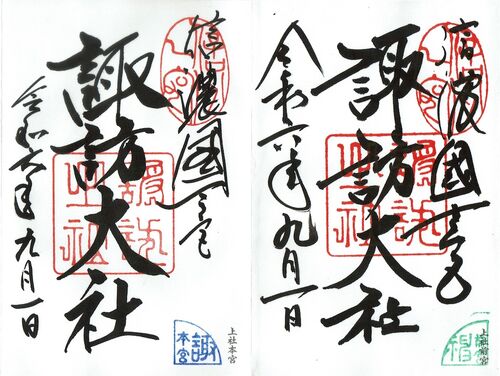 信濃國一之宮
諏訪大社
令和六年九月一日
上社本宮
諏
本宮
信濃國一之宮
諏訪大社
令和六年九月一日
上社前宮